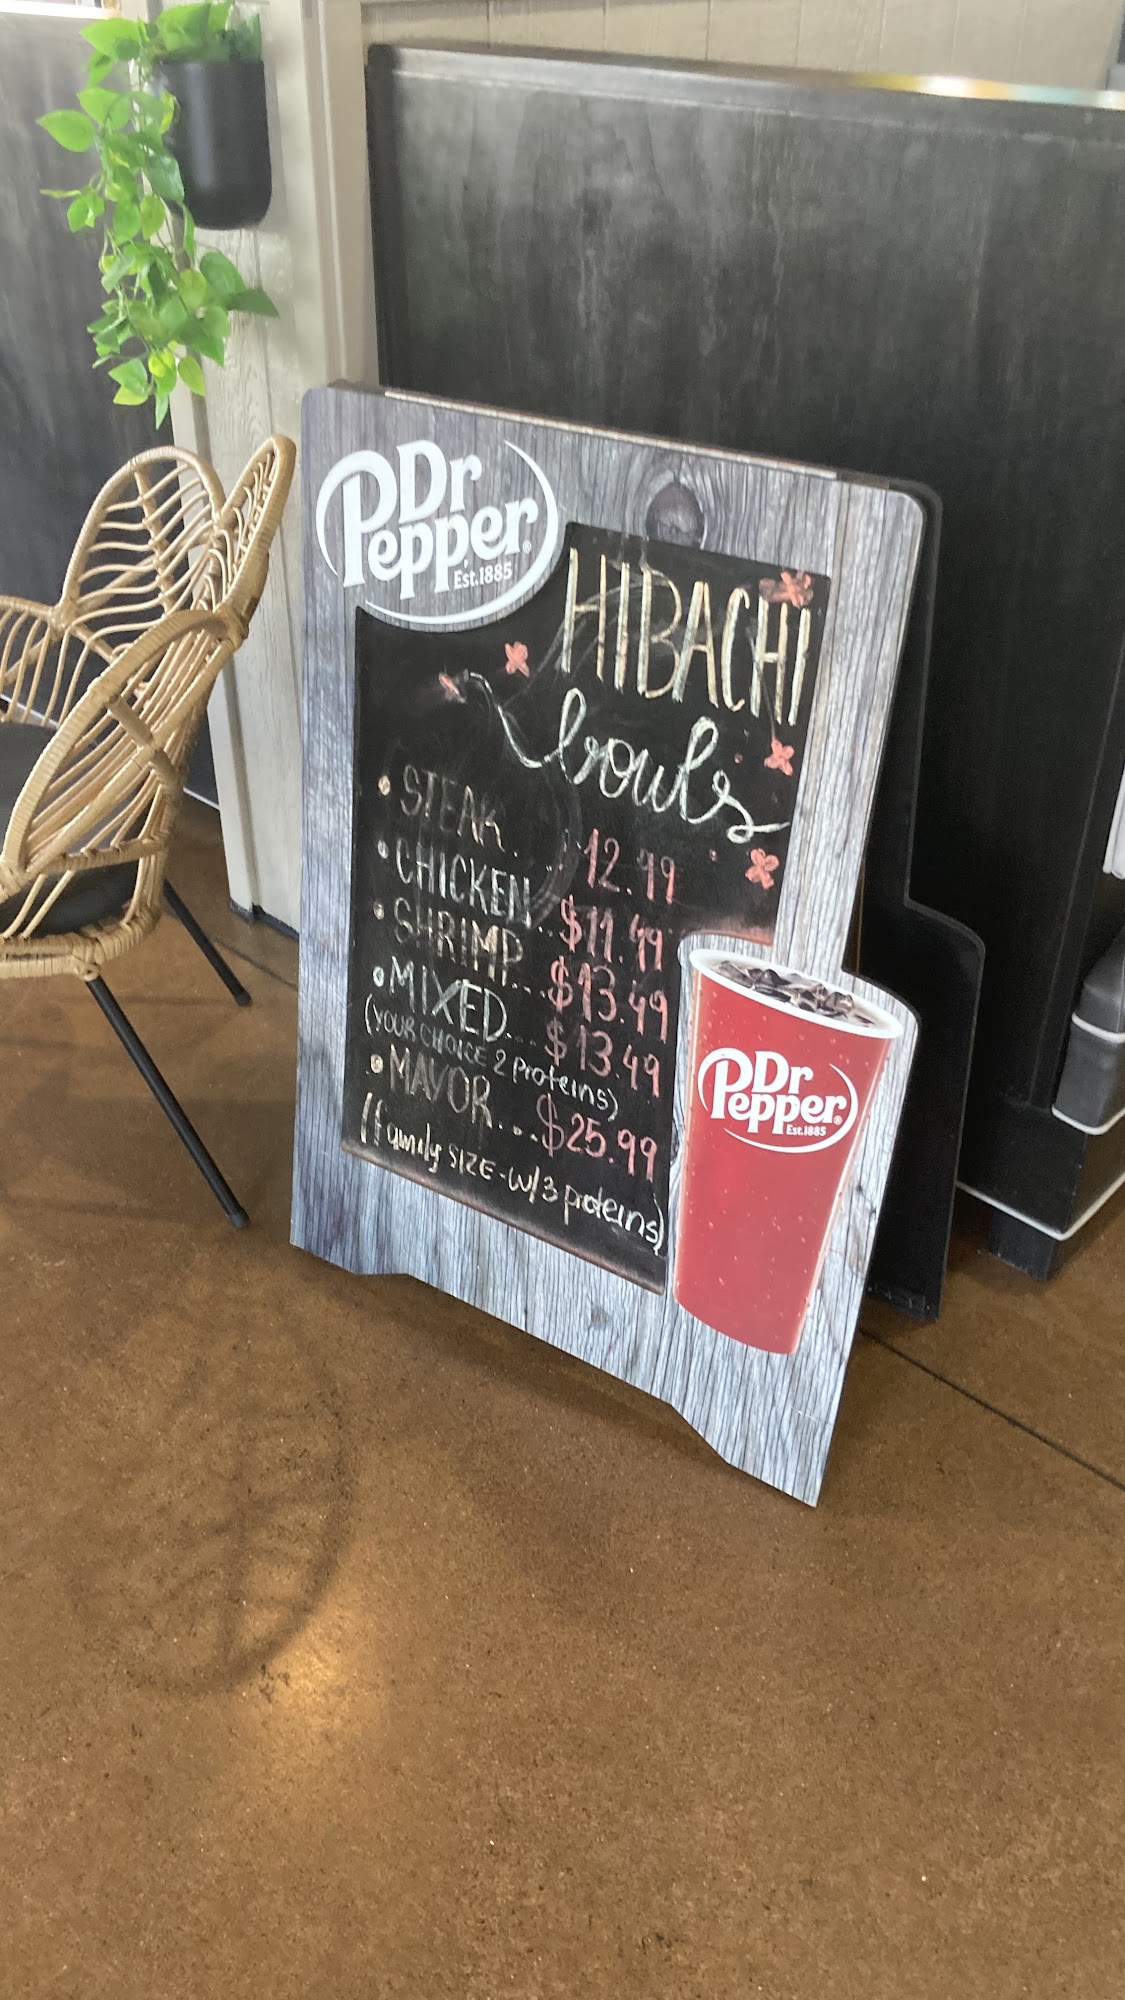 Dr Pepper®
Est.1885
HIBACHI
bowls
• STEAK... 12.49
• CHICKEN..$11.49
• SHRIMP...$13.49
• MIXED....$13.49
(YOUR CHOICE 2 proteins)
• MAYOR...$25.99
(family SIZE - w/3 proteins)
Dr Pepper®
Est.1885